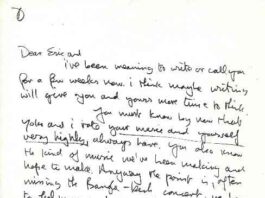 Dear Eric and
i've been meaning to write or call you
for a few weeks now. i think maybe writing
will give you and yours more time to think.
You must know by now that
Yoko and i rate your music and yourself
very highly, always have. You also know
the kind of music we've been making and
hope to make. Anyway the point is, after
missing the Bangla-Desh concert, we